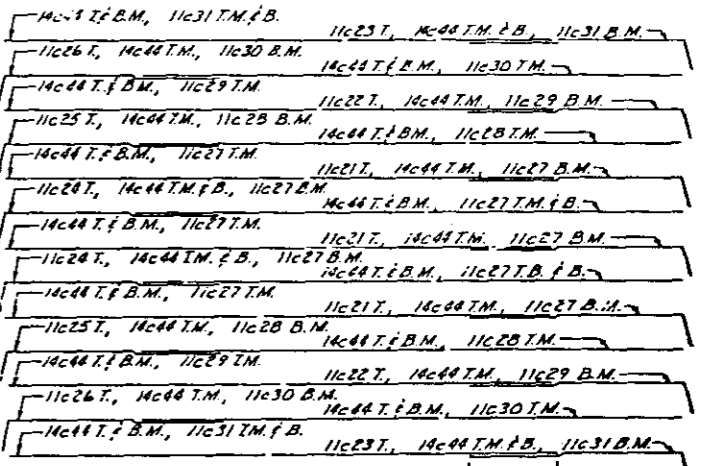 14c44 T. & B.M., 11c31 T.M. & B.
11c23 T., 14c44 T.M. & B., 11c31 B.M.
11c26 T., 14c44 T.M., 11c30 B.M.
14c44 T. & B.M., 11c30 T.M.
14c44 T. & B.M., 11c29 T.M.
11c22 T., 14c44 T.M., 11c29 B.M.
11c25 T., 14c44 T.M., 11c28 B.M.
14c44 T. & B.M., 11c28 T.M.
14c44 T. & B.M., 11c27 T.M.
11c21 T., 14c44 T.M., 11c27 B.M.
11c24 T., 14c44 T.M. & B., 11c27 B.M.
14c44 T. & B.M., 11c27 T.M. & B.
14c44 T. & B.M., 11c27 T.M.
11c21 T., 14c44 T.M. 11c27 B.M.
11c24 T., 14c44 T.M. & B., 11c27 B.M.
14c44 T. & B.M., 11c27 T.B. & B.
14c44 T. & B.M., 11c27 T.M.
11c21 T., 14c44 T.M., 11c27 B.M.
11c25 T., 14c44 T.M., 11c28 B.M.
14c44 T. & B.M., 11c28 T.M.
14c44 T. & B.M., 11c29 T.M.
11c22 T., 14c44 T.M., 11c29 B.M.
11c26 T., 14c44 T.M., 11c30 B.M.
14c44 T. & B.M., 11c30 T.M.
14c44 T. & B.M., 11c31 T.M. & B.
11c23 T., 14c44 T.M. & B., 11c31 B.M.